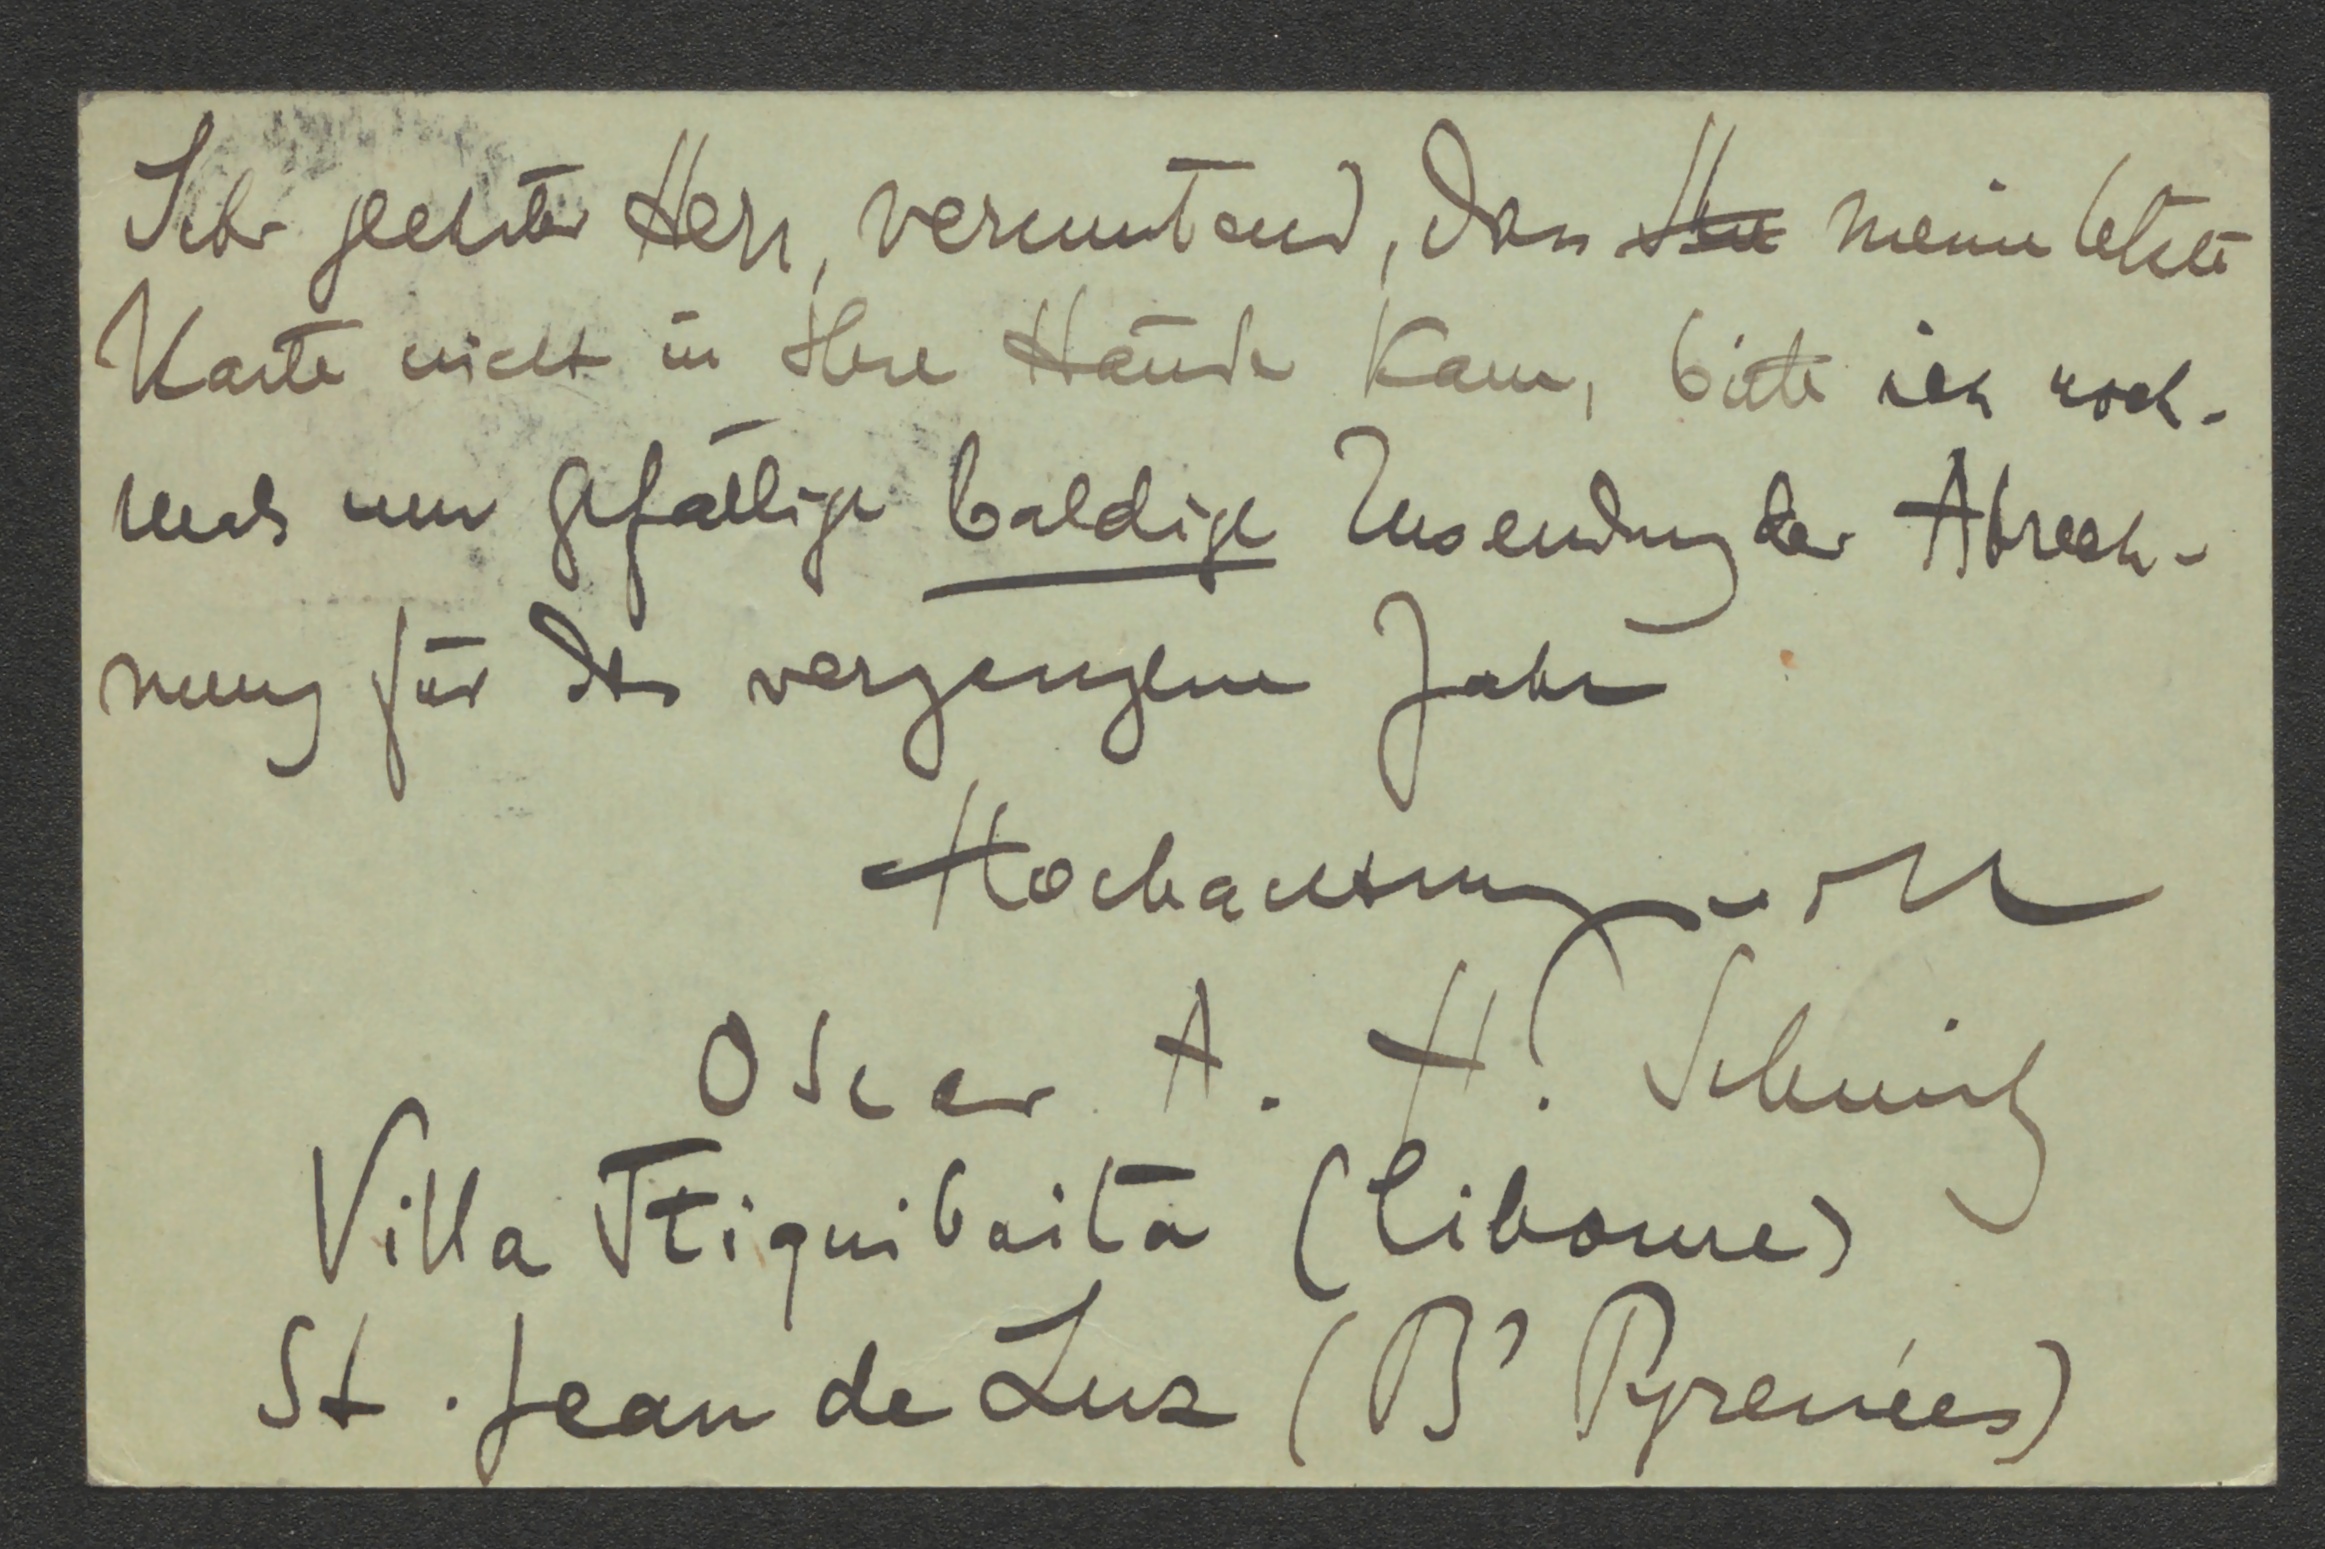 Sehr geehrter Herr, vermutend, dass ~~Ihre~~ meine letzte
Karte nicht in Ihre Hände kam, bitte ich noch-
mals um gefällige baldige Zusendung der Abrech-
nung für das vergangene Jahr
Hochachtungsvoll
Oscar A. H. Schmitz
Villa (Ciboure)
St. Jean de Luz (Bs Pyrenées)